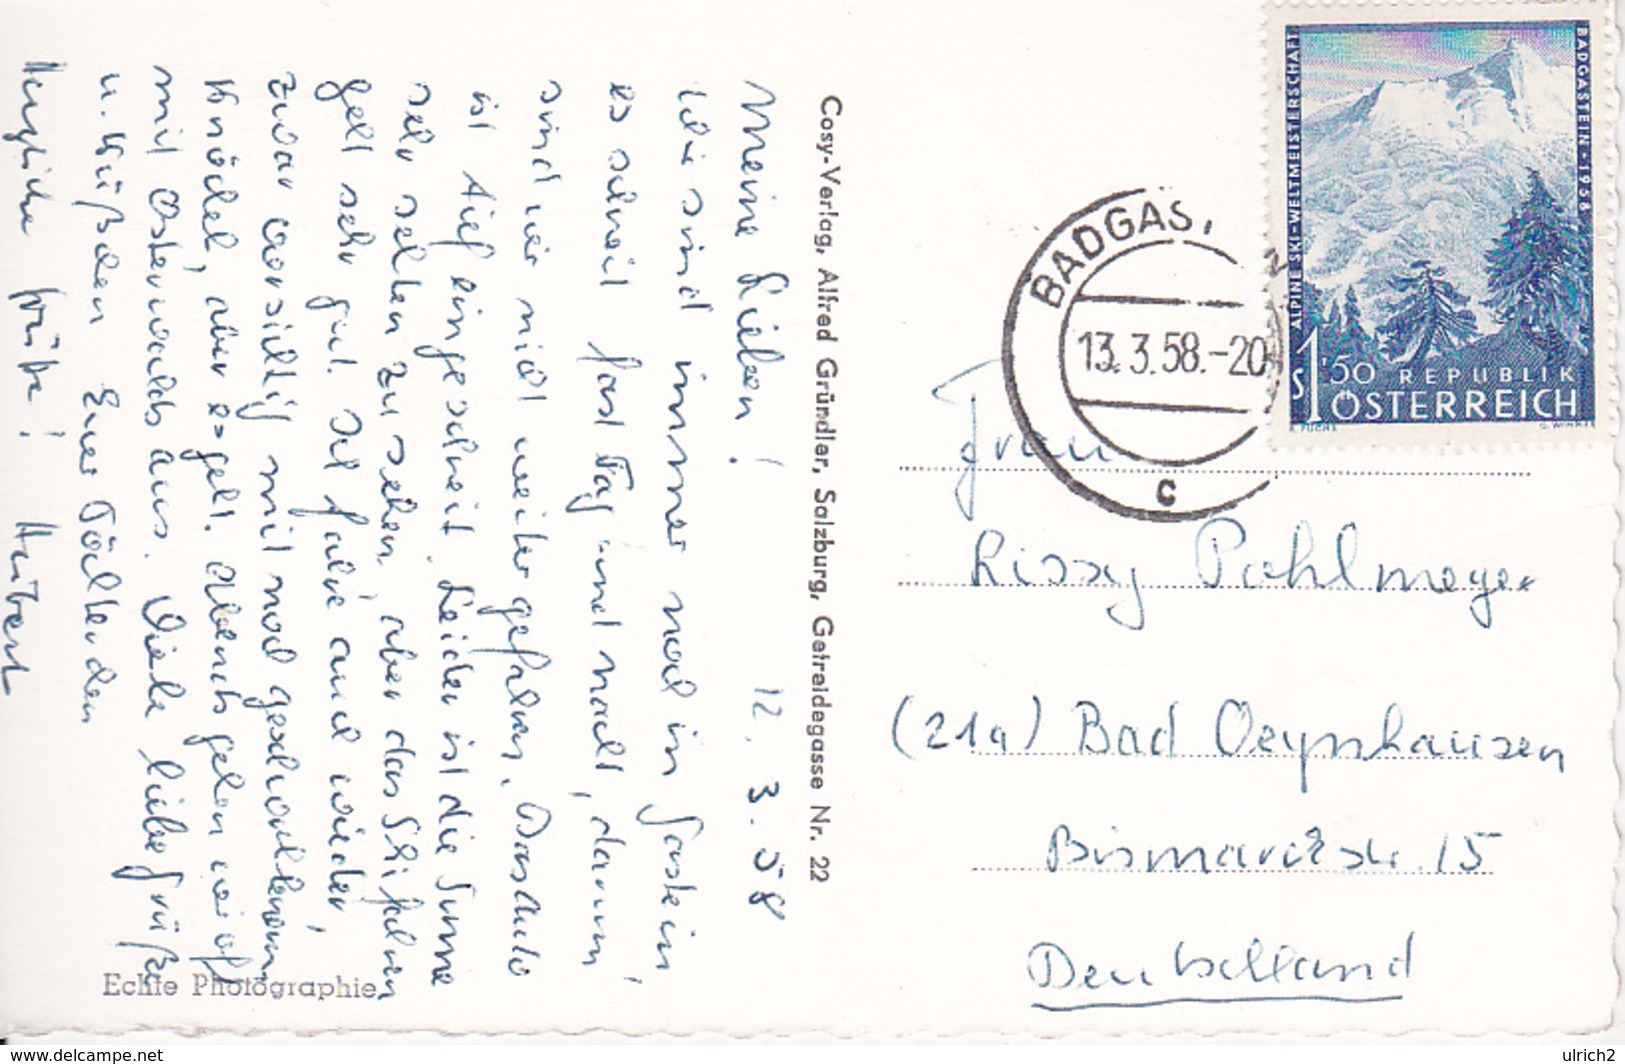 Meine Lieben! 12. 3. 58
Wir sind immer noch in Gastein
es schneit fast Tag und Nacht, darum
sind wir nicht weiter gefahren. Das Auto
ist tief eingeschneit. Leider ist die Sonne
sehr selten zu sehen, aber das Ski fahren
geht sehr gut. Ich fahre auch wieder,
zwar vorsichtig mit noch geschwollenem
Knöchel, aber es geht. Abends gehen wir oft
mit Osterwalds aus. Viele liebe Grüße
u. Küßchen Euer Töchterchen
Herzliche Grüße! Hubert
Echte Photographie
Cosy-Verlag, Alfred Gründler, Salzburg, Getreidegasse Nr. 22
ALPINE SKI-WELTMEISTERSCHAFT
BADGASTEIN · 1958
S 1'50 REPUBLIK
ÖSTERREICH
BADGAS
13. 3. 58.-20
c
Frau
Lissy Pohlmeyer
(21a) Bad Oeynhausen
Bismarckstr. 15
Deutschland
www.delcampe.net
ulrich2